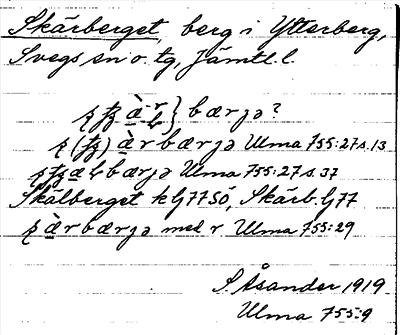 Skärberget, berg i Ytterberg,
Svegs sn o. tg, Jämtl. l.
bærjə?
bærjə Ulma 755:27 s. 13
bærjə Ulma 755:27 s. 37
Skälberget kG77SÖ, Skärb. G77
med r Ulma 755:29
S Åsander 1919
Ulma 755:9